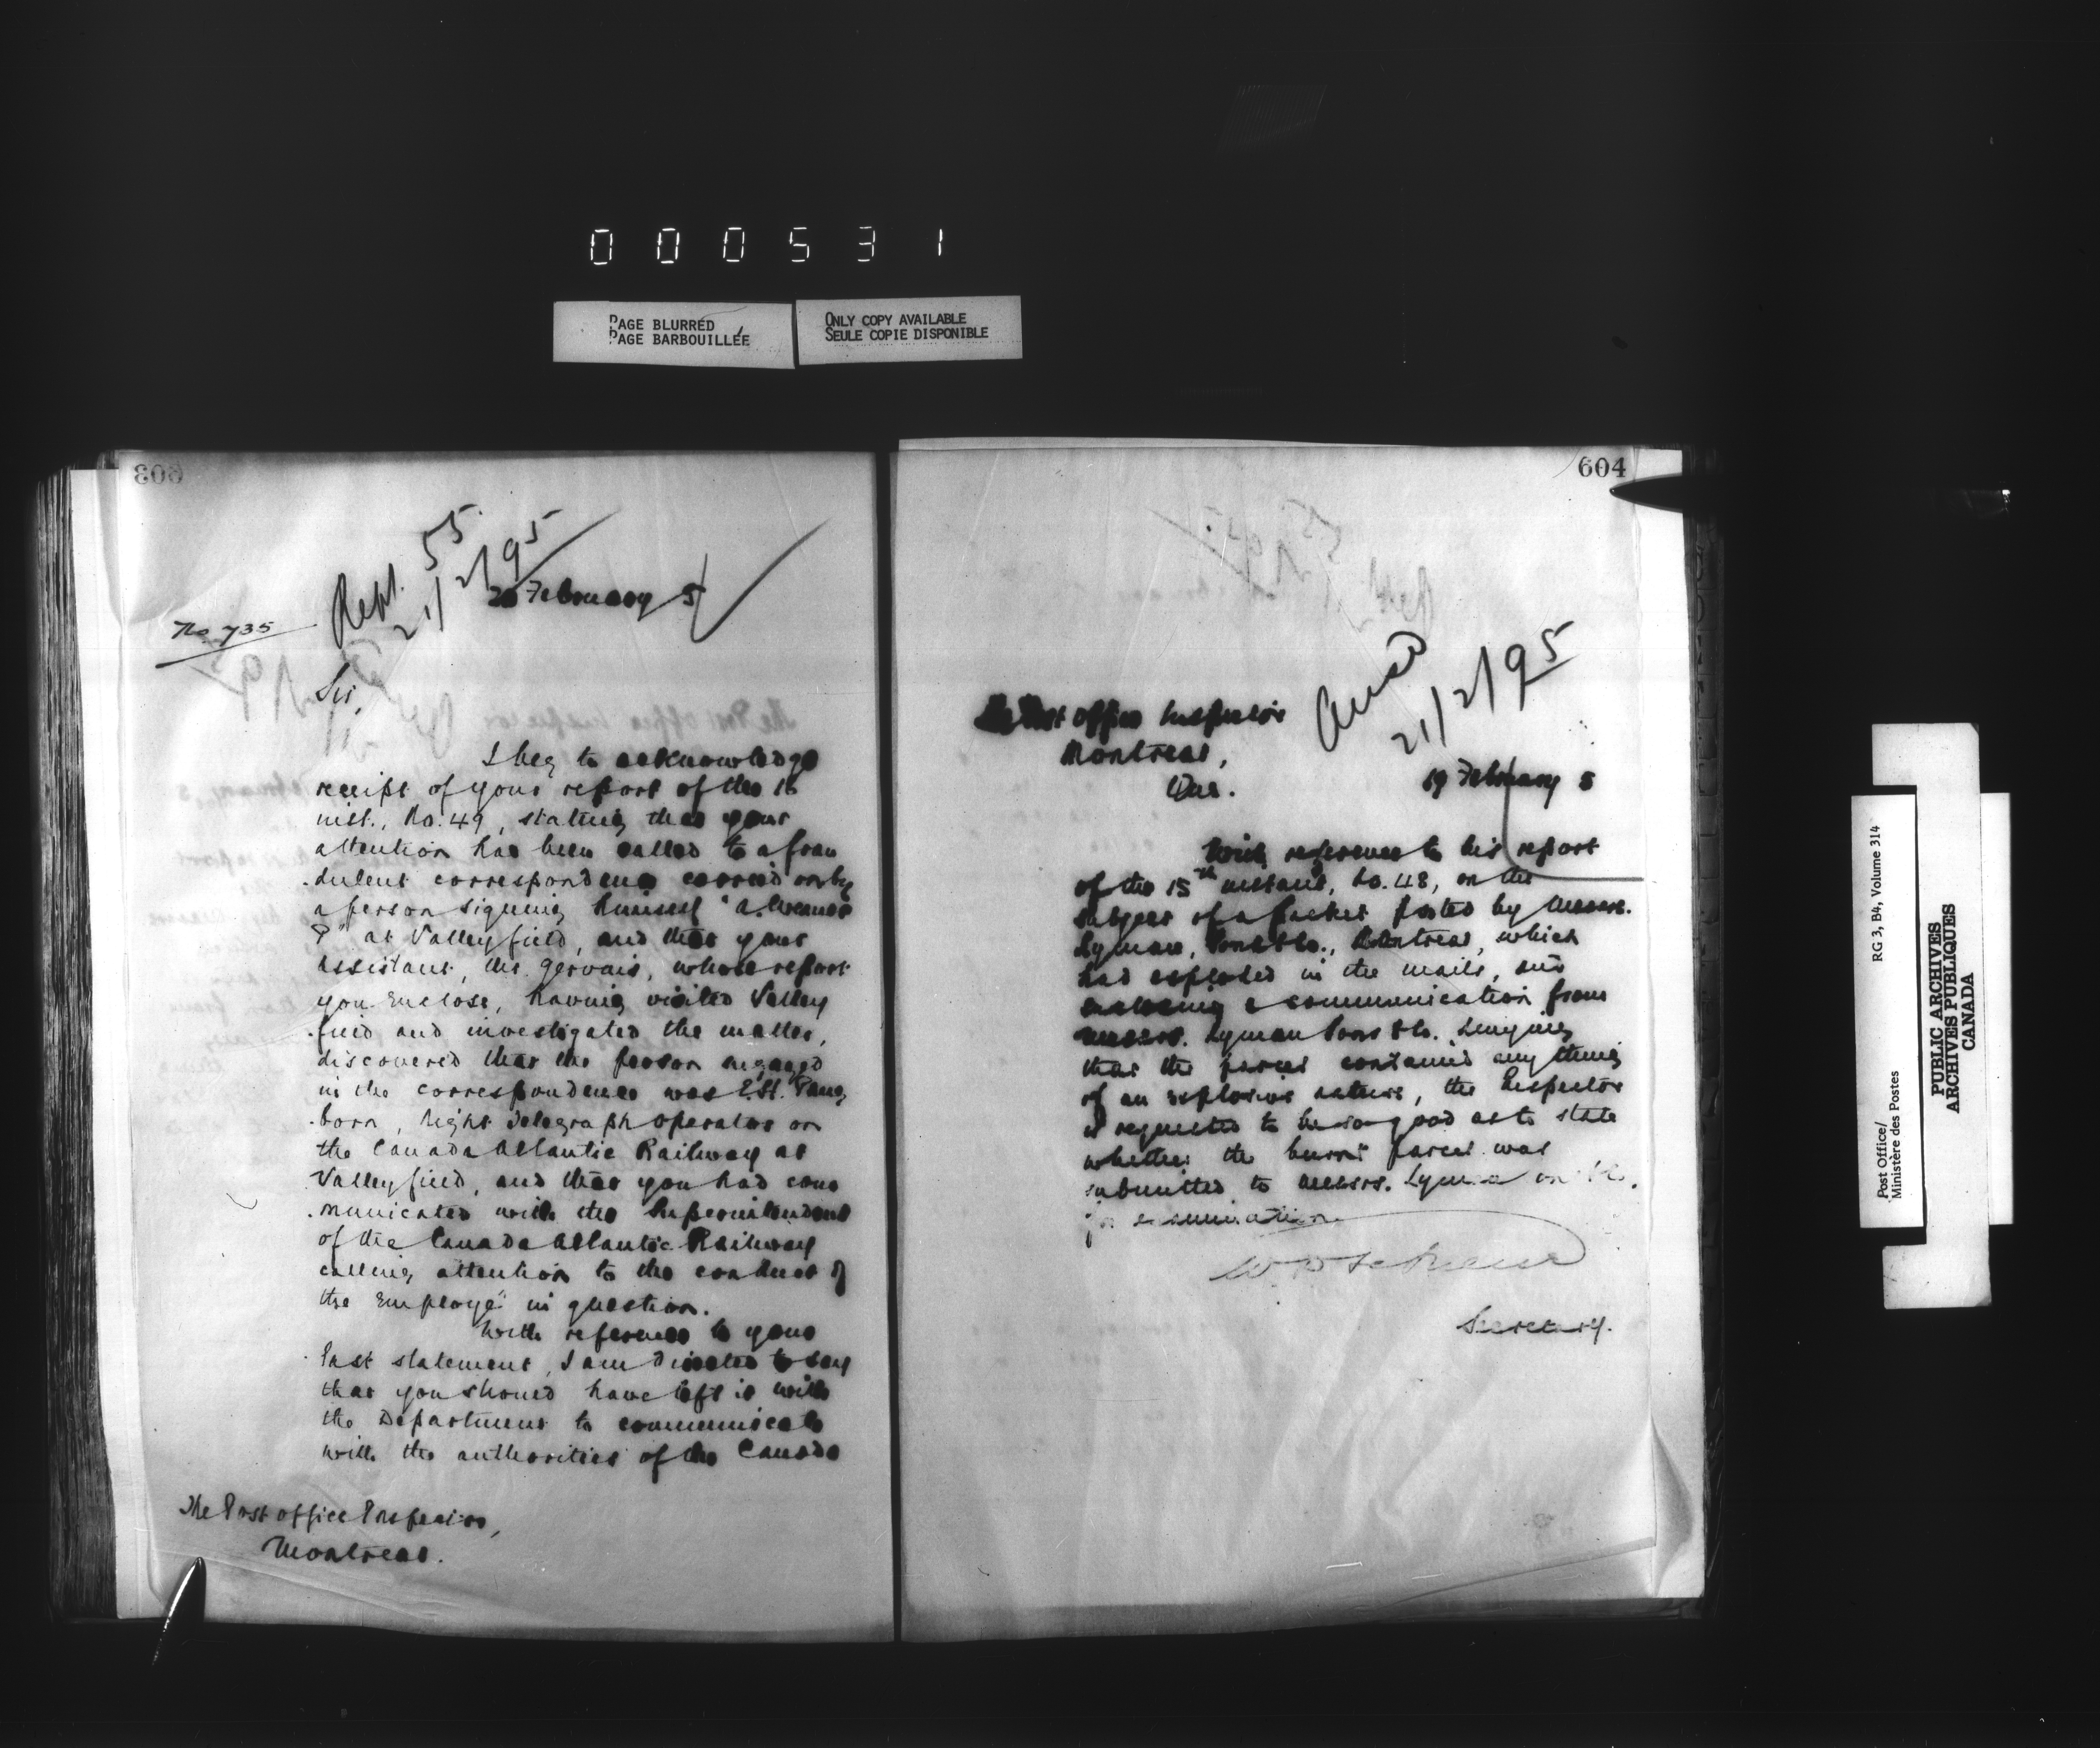 000531
PAGE BLURRED
PAGE BARBOUILLÉE
ONLY COPY AVAILABLE
SEULE COPIE DISPONIBLE
603
Rept. 55
21/2/95
20 February 5
No 735
Sir,
I beg to acknowledge
receipt of your report of the 16
inst., No. 49, stating that your
attention has been called to a frau
dulent correspondence carried on by
a person signing himself "A.
P" at Valleyfield, and that your
assistant, Mr. Gervais, whose report
you enclose, having visited Valley
field and investigated the matter,
discovered that the person engaged
in the correspondence was
born, night telegraph operator on
the Canada Atlantic Railway at
Valleyfield, and that you had com
municated with the Superintendent
of the Canada Atlantic Railway
calling attention to the conduct of
the employé in question.
With reference to your
last statement, I am directed to say
that you should have left it with
the Department to communicate
with the authorities of the Canada
The Post Office Inspector,
Montreal.
604
Ansd
21/2/95
The Post Office Inspector
Montreal,
Que.
19 February 5
With reference to his report
of the 15th instant, No. 48, on the
subject of a packet posted by Messrs.
Lyman, Sons & Co., Montreal, which
had exploded in the mails, and
enclosing a communication from
Messrs. Lyman Sons & Co. denying
that the parcel contained anything
of an explosive nature, the Inspector
is requested to be so good as to state
whether the burnt parcel was
submitted to Messrs. Lyman Sons & Co.
for examination.
Secretary.
Post Office/ RG 3, B4, Volume 314
Ministère des Postes
PUBLIC ARCHIVES
ARCHIVES PUBLIQUES
CANADA